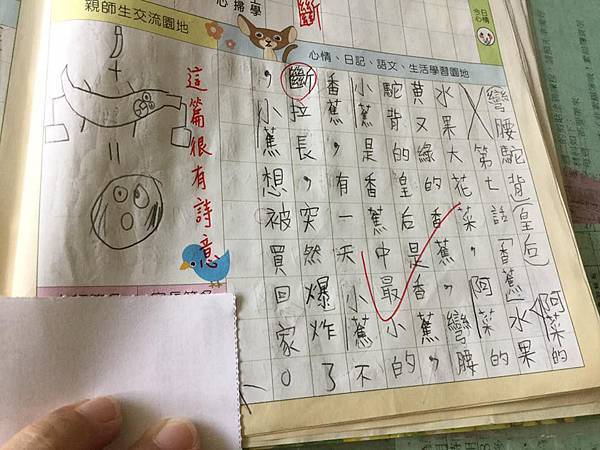 親師生交流園地
心掃學
斷
今日心情
心情、日記、語文、生活學習園地
彎腰駝背(皇后)阿菜的
第七話「香蕉」水果
水果大花菜，阿菜的
黃又綠的香蕉，彎腰
駝背的皇后是香蕉，
小蕉，是香蕉中最小的
香蕉，有一天小蕉不
斷拉長，突然爆炸了
，小蕉想被買回家。
這篇很有詩意